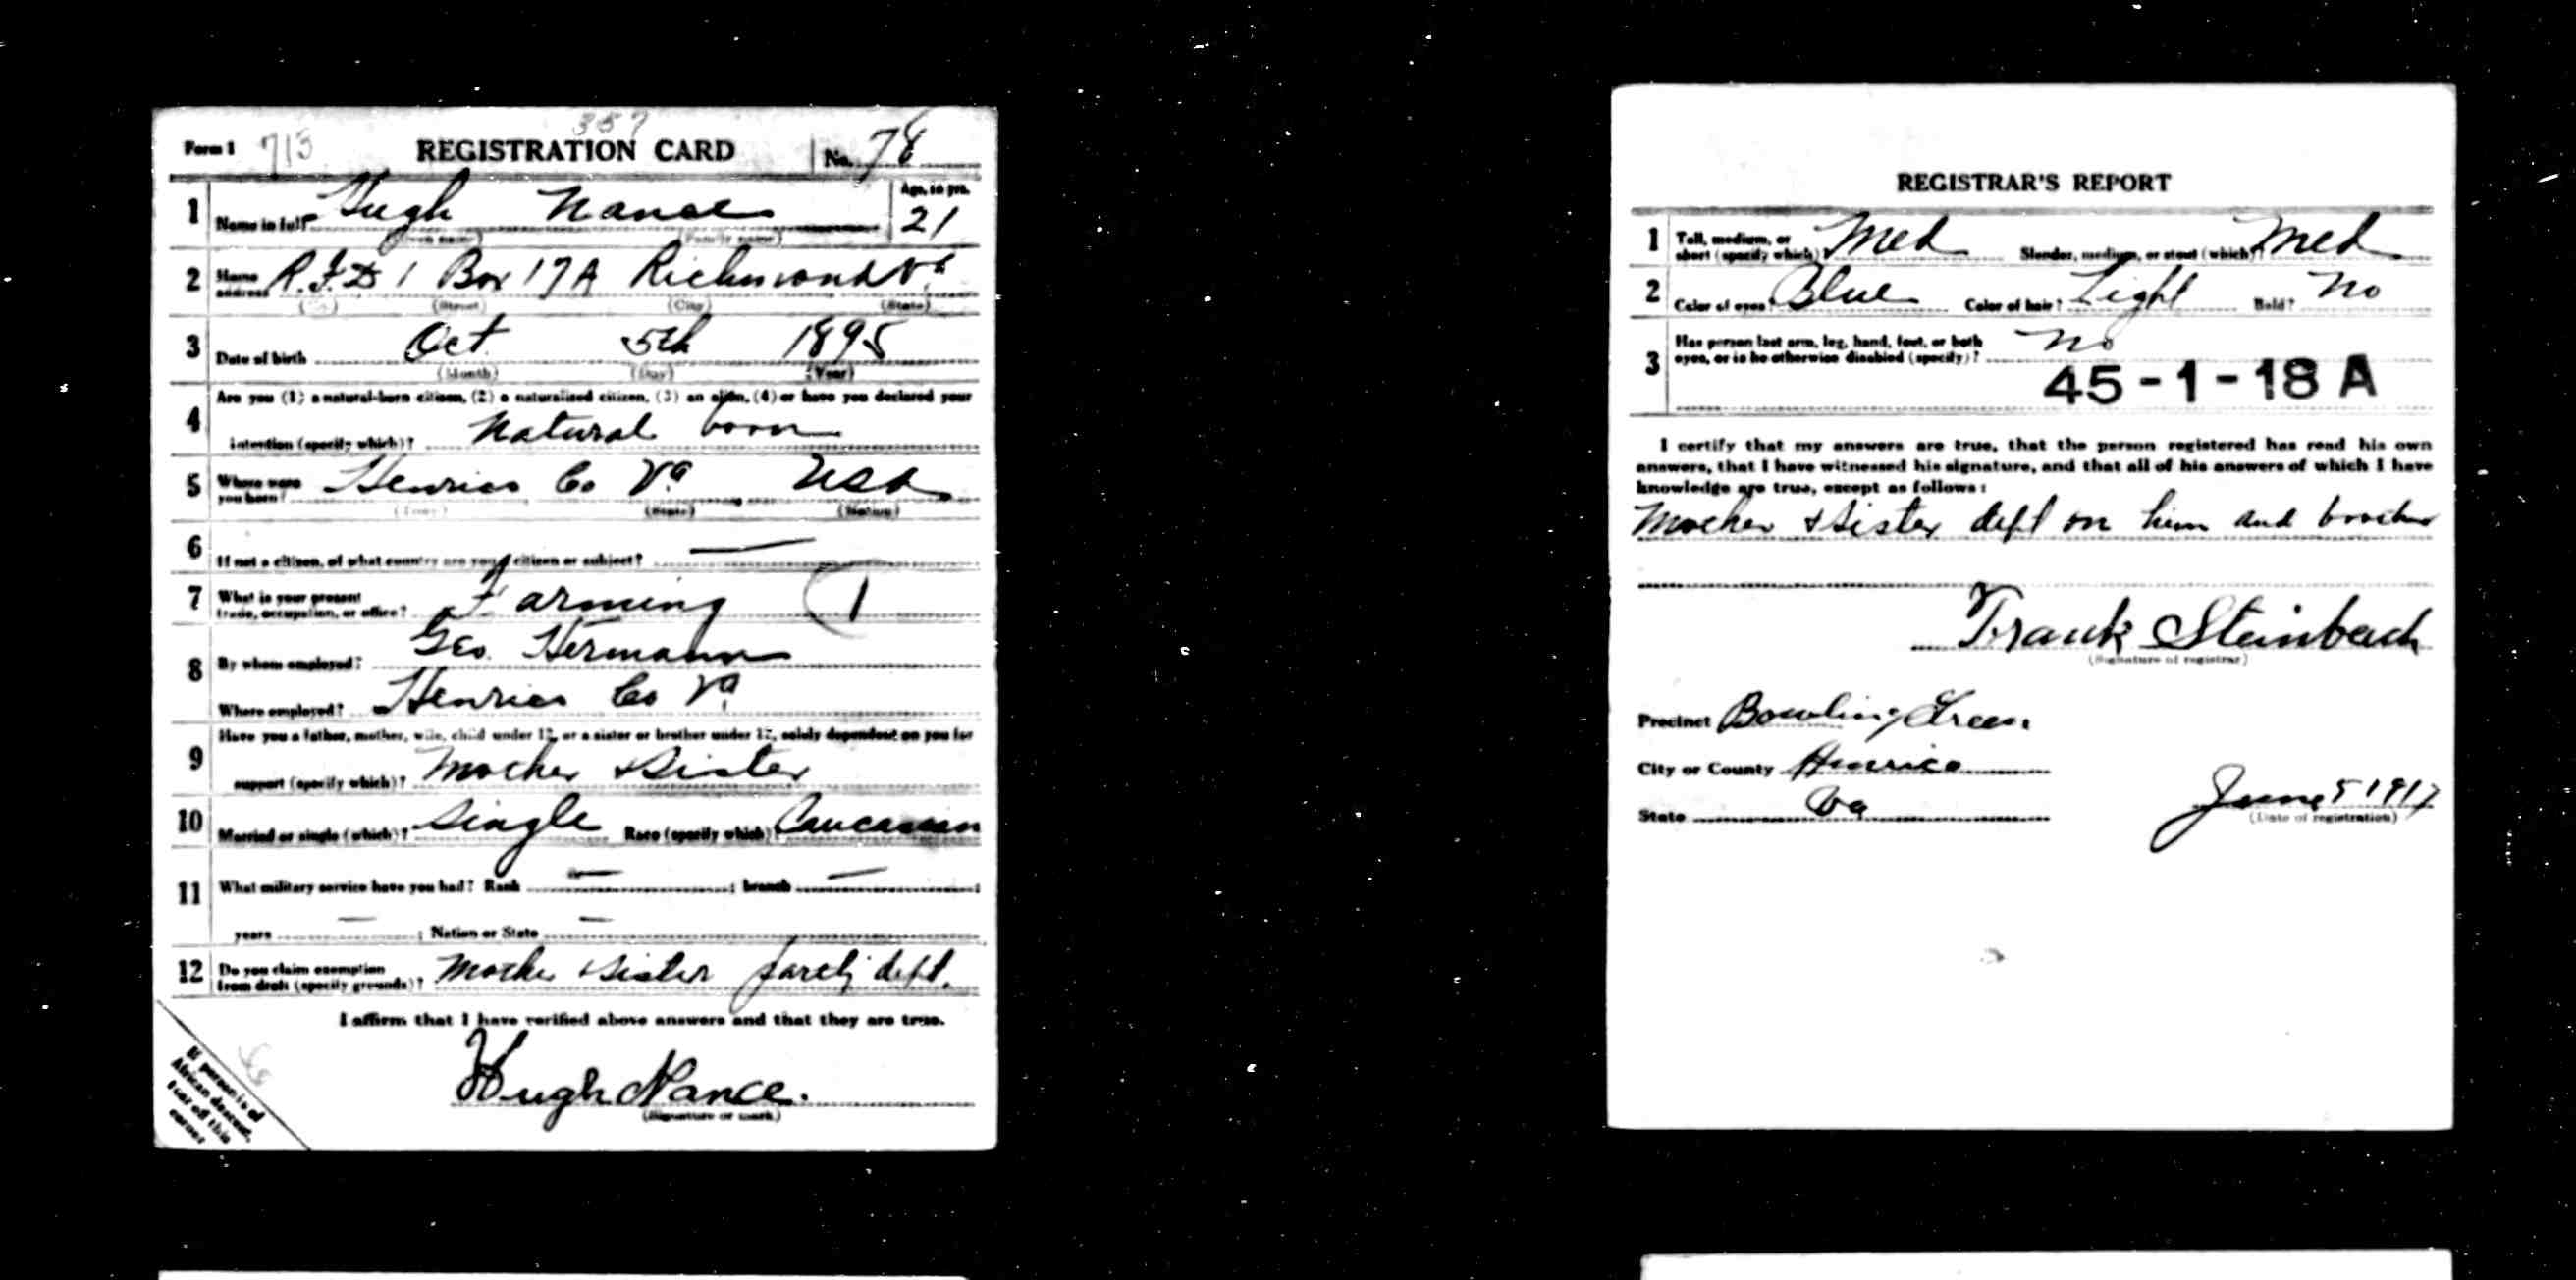 Form 1 713 REGISTRATION CARD 357 No. 78
1 Name in full Hugh Nance Age, in yrs. 21
(Given name) (Family name)
2 Home address R.F.D 1 Box 17A Richmond Va
(No.) (Street) (City) (State)
3 Date of birth Oct. 5th 1895
(Month) (Day) (Year)
4 Are you (1) a natural-born citizen, (2) a naturalized citizen, (3) an alien, (4) or have you declared your
intention (specify which)? Natural born
5 Where were you born? Henrico Co Va USA
(Town) (State) (Nation)
6 If not a citizen, of what country are you a citizen or subject? —
7 What is your present trade, occupation, or office? Farming 1
8 By whom employed? Geo. Hermann
Where employed? Henrico Co Va
9 Have you a father, mother, wife, child under 12, or a sister or brother under 12, solely dependent on you for
support (specify which)? Mother & Sister
10 Married or single (which)? Single Race (specify which)? Caucasian
11 What military service have you had? Rank — ; branch — ;
years — ; Nation or State —
12 Do you claim exemption from draft (specify grounds)? Mother & Sister partly dept.
I affirm that I have verified above answers and that they are true.
Hugh Nance.
(Signature or mark)
If person is of
African descent,
tear off this
corner
REGISTRAR'S REPORT
1 Tall, medium, or short (specify which)? Med Slender, medium, or stout (which)? Med
2 Color of eyes? Blue Color of hair? Light Bald? No
3 Has person lost arm, leg, hand, foot, or both eyes, or is he otherwise disabled (specify)? No
45-1-18 A
I certify that my answers are true, that the person registered has read his own
answers, that I have witnessed his signature, and that all of his answers of which I have
knowledge are true, except as follows:
Mother & Sister dept on him and brother
Frank Steinbach
(Signature of registrar)
Precinct Bowling Green
City or County Henrico
State Va
June 5 1917
(Date of registration)